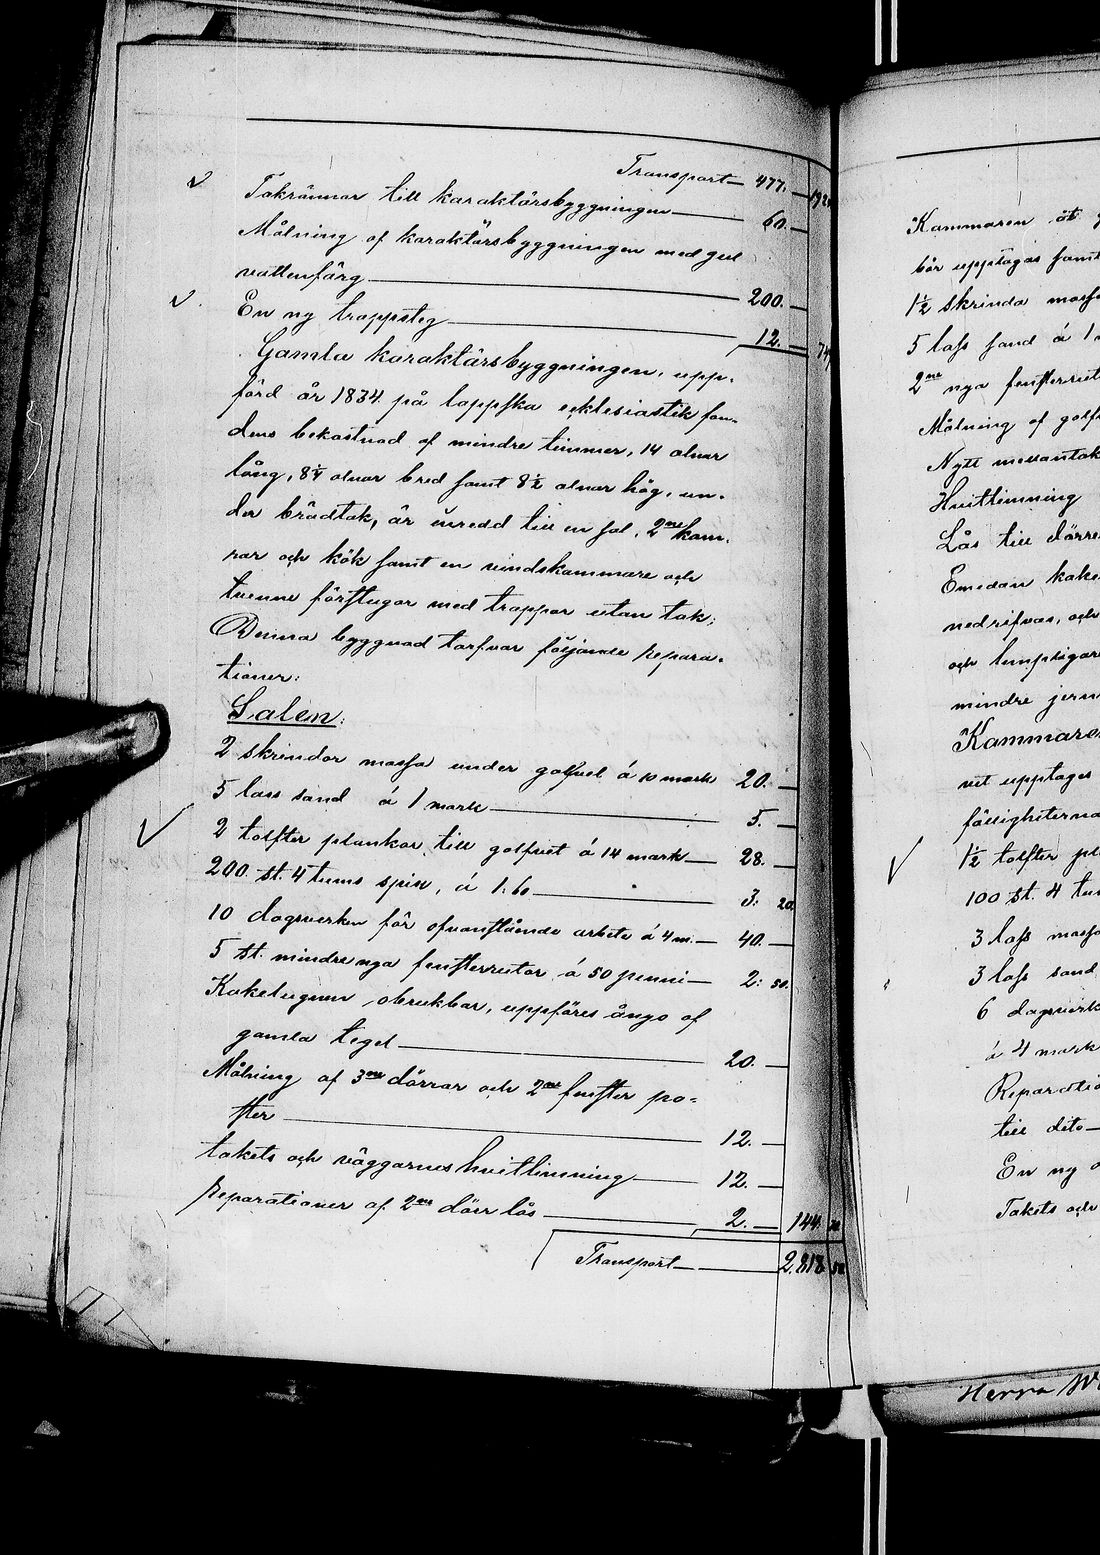 Transport 477. —
Takrännor till karaktärsbyggningen 60. —
Målning af karaktärsbyggningen med gul
vattenfärg 200. —
En ny trappsteg 12. —
Gamla karaktärsbyggningen, upp-
förd år 1834 på lappska ecklesiastik fon-
dens bekostnad af mindre timmer, 14 alnar
lång, 8¼ alnar bred samt 8½ alnar hög, un-
der brädtak, är inredd till en sal, 2ne kam-
rar och kök samt en vindskammare och
tvenne förstugor med trappor utan tak;
Denna byggnad tarfvar följande repara-
tioner:
Salen:
2 skrindor mossa under golfvet á 10 mark 20. —
5 lass sand á 1 mark 5. —
2 tolfter plankor till golfvet á 14 mark 28. —
200 st. 4 tums spik, á 1:60 3: 20.
10 dagsverken för ofvanstående arbete á 4 m. 40. —
5 st. mindre nya fensterrutor á 50 penni 2: 50.
Kakelugnen, obrukbar, uppföres ånyo af
gamla tegel 20. —
Målning af 3ne dörrar och 2ne fenster po-
ster 12. —
takets och väggarnes hvitlimning 12. —
Reparationer af 2ne dörr lås 2. — 144
Transport 2.818
Kammaren åt
bör upptagas samt
1½ skrinda mossa
5 lass sand á 1
2ne nya
Målning af
Nytt mellantak
Hvitlimning
Lås till
Emedan
nedrifvas, och
och
mindre
Kammare
vet upptages
1½ tolfter
100 st. 4
3 lass mossa
3 lass sand
6
á 4 mark
till dito
En ny
Takets och
Herra